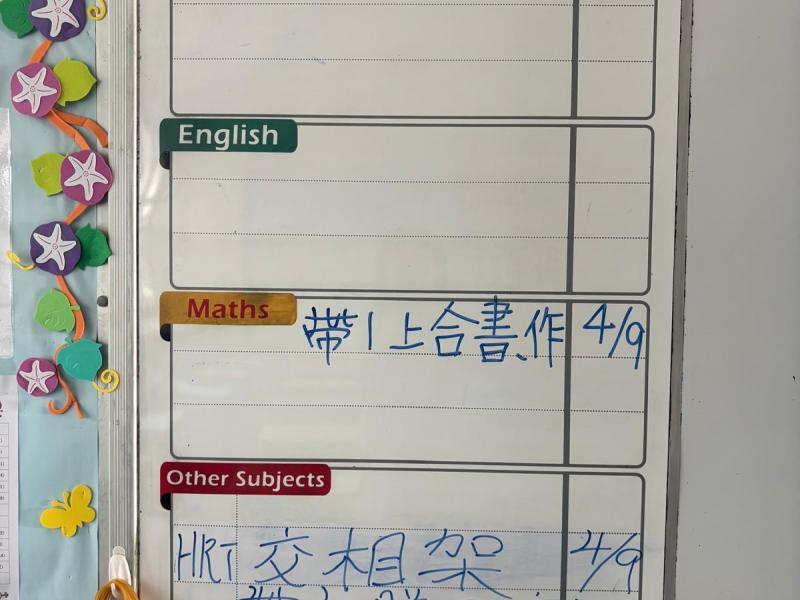 English
Maths
帶1上合書、作 4/9
Other Subjects
HRT 交相架 4/9